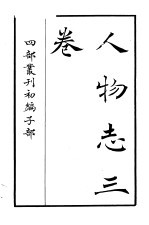 人物志三
卷
四部叢刊初編子部